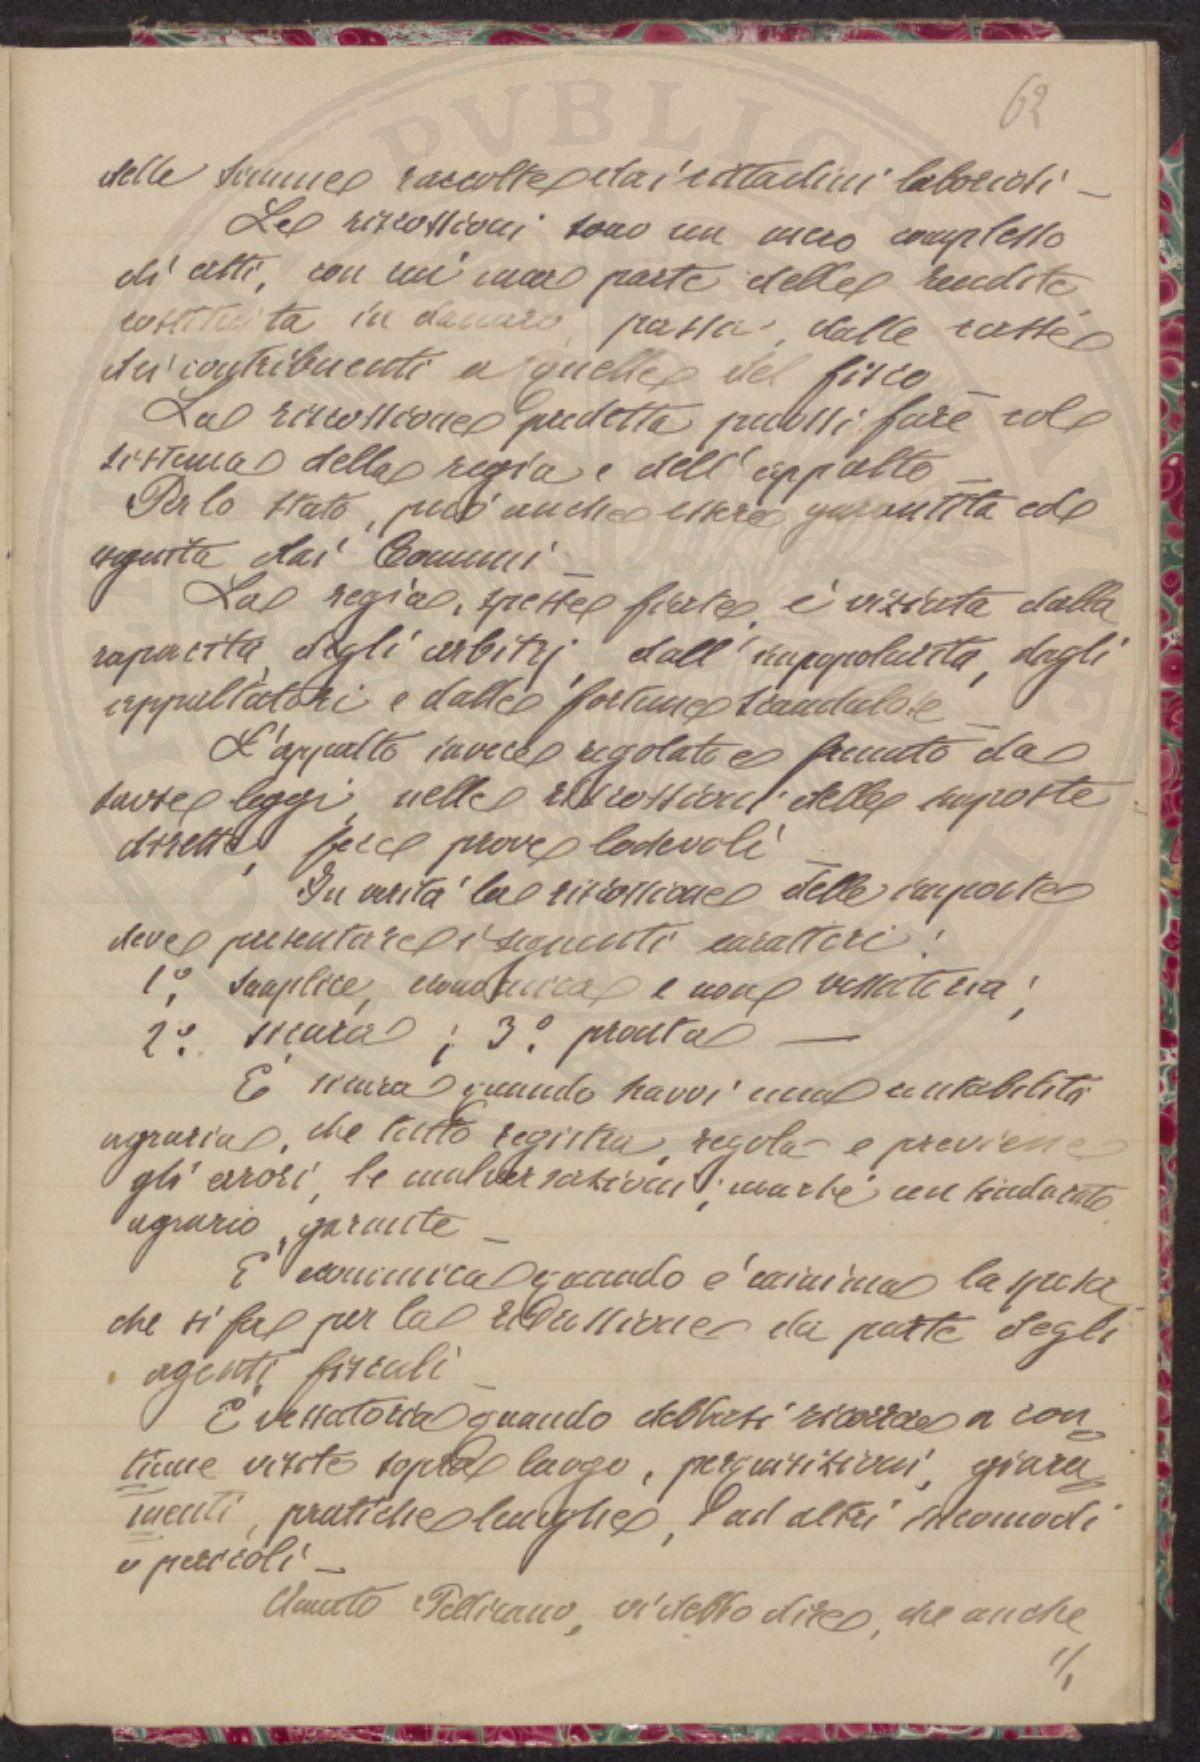 62
delle somme raccolte dai cittadini laboriosi —
Le riscossioni sono un mero complesso
di atti, con cui una parte delle rendite
costituita in danaro, passa, dalle casse
dei contribuenti a quelle del fisco —
La riscossione predetta puossi fare col
sistema della regia e dell'appalto —
Per lo stato, può anche essere garantita ed
eseguita dai Comuni —
La regia, spesse fiate, è viziata dalla
rapacità degli arbitrj, dall'impopolarità, dagli
appaltatori e dalle fortune scandalose —
L'appalto invece regolato e frenato da
savie leggi, nelle riscossioni delle imposte
dirette, fece prove lodevoli —
In verità la riscossione delle imposte
deve presentare i seguenti caratteri:
1º. semplice, economica e non vessatoria;
2º. sicura; 3º. pronta —
È sicura quando havvi una contabilità
agraria, che tutto registra, regola e previene
gli errori, le malversazioni; un sindacato
agrario, garante —
È economica quando è minima la spesa
che si fa per la da parte degli
agenti fiscali —
È vessatoria quando debbasi ricorrere a con-
tinue visite sopra luogo, perquisizioni, giura-
menti, pratiche lunghe, ad altri incomodi
e pericoli —
Pellicano, vi debbo dire, che anche
1/1